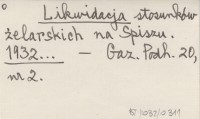 Likwidacja stosunków
żelarskich na Spiszu.
1932... — Gaz. Podh. 20,
nr 2.